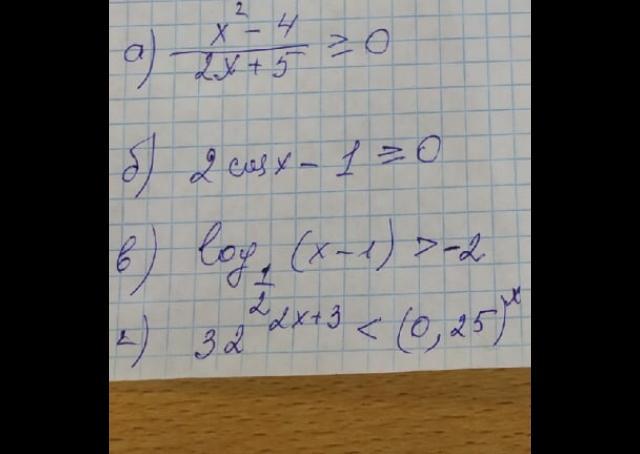 а) (x² - 4)/(2x + 5) ≥ 0
б) 2 cos x - 1 ≥ 0
в) log_{1/2} (x - 1) > -2
г) 32^{2x+3} < (0,25)^x